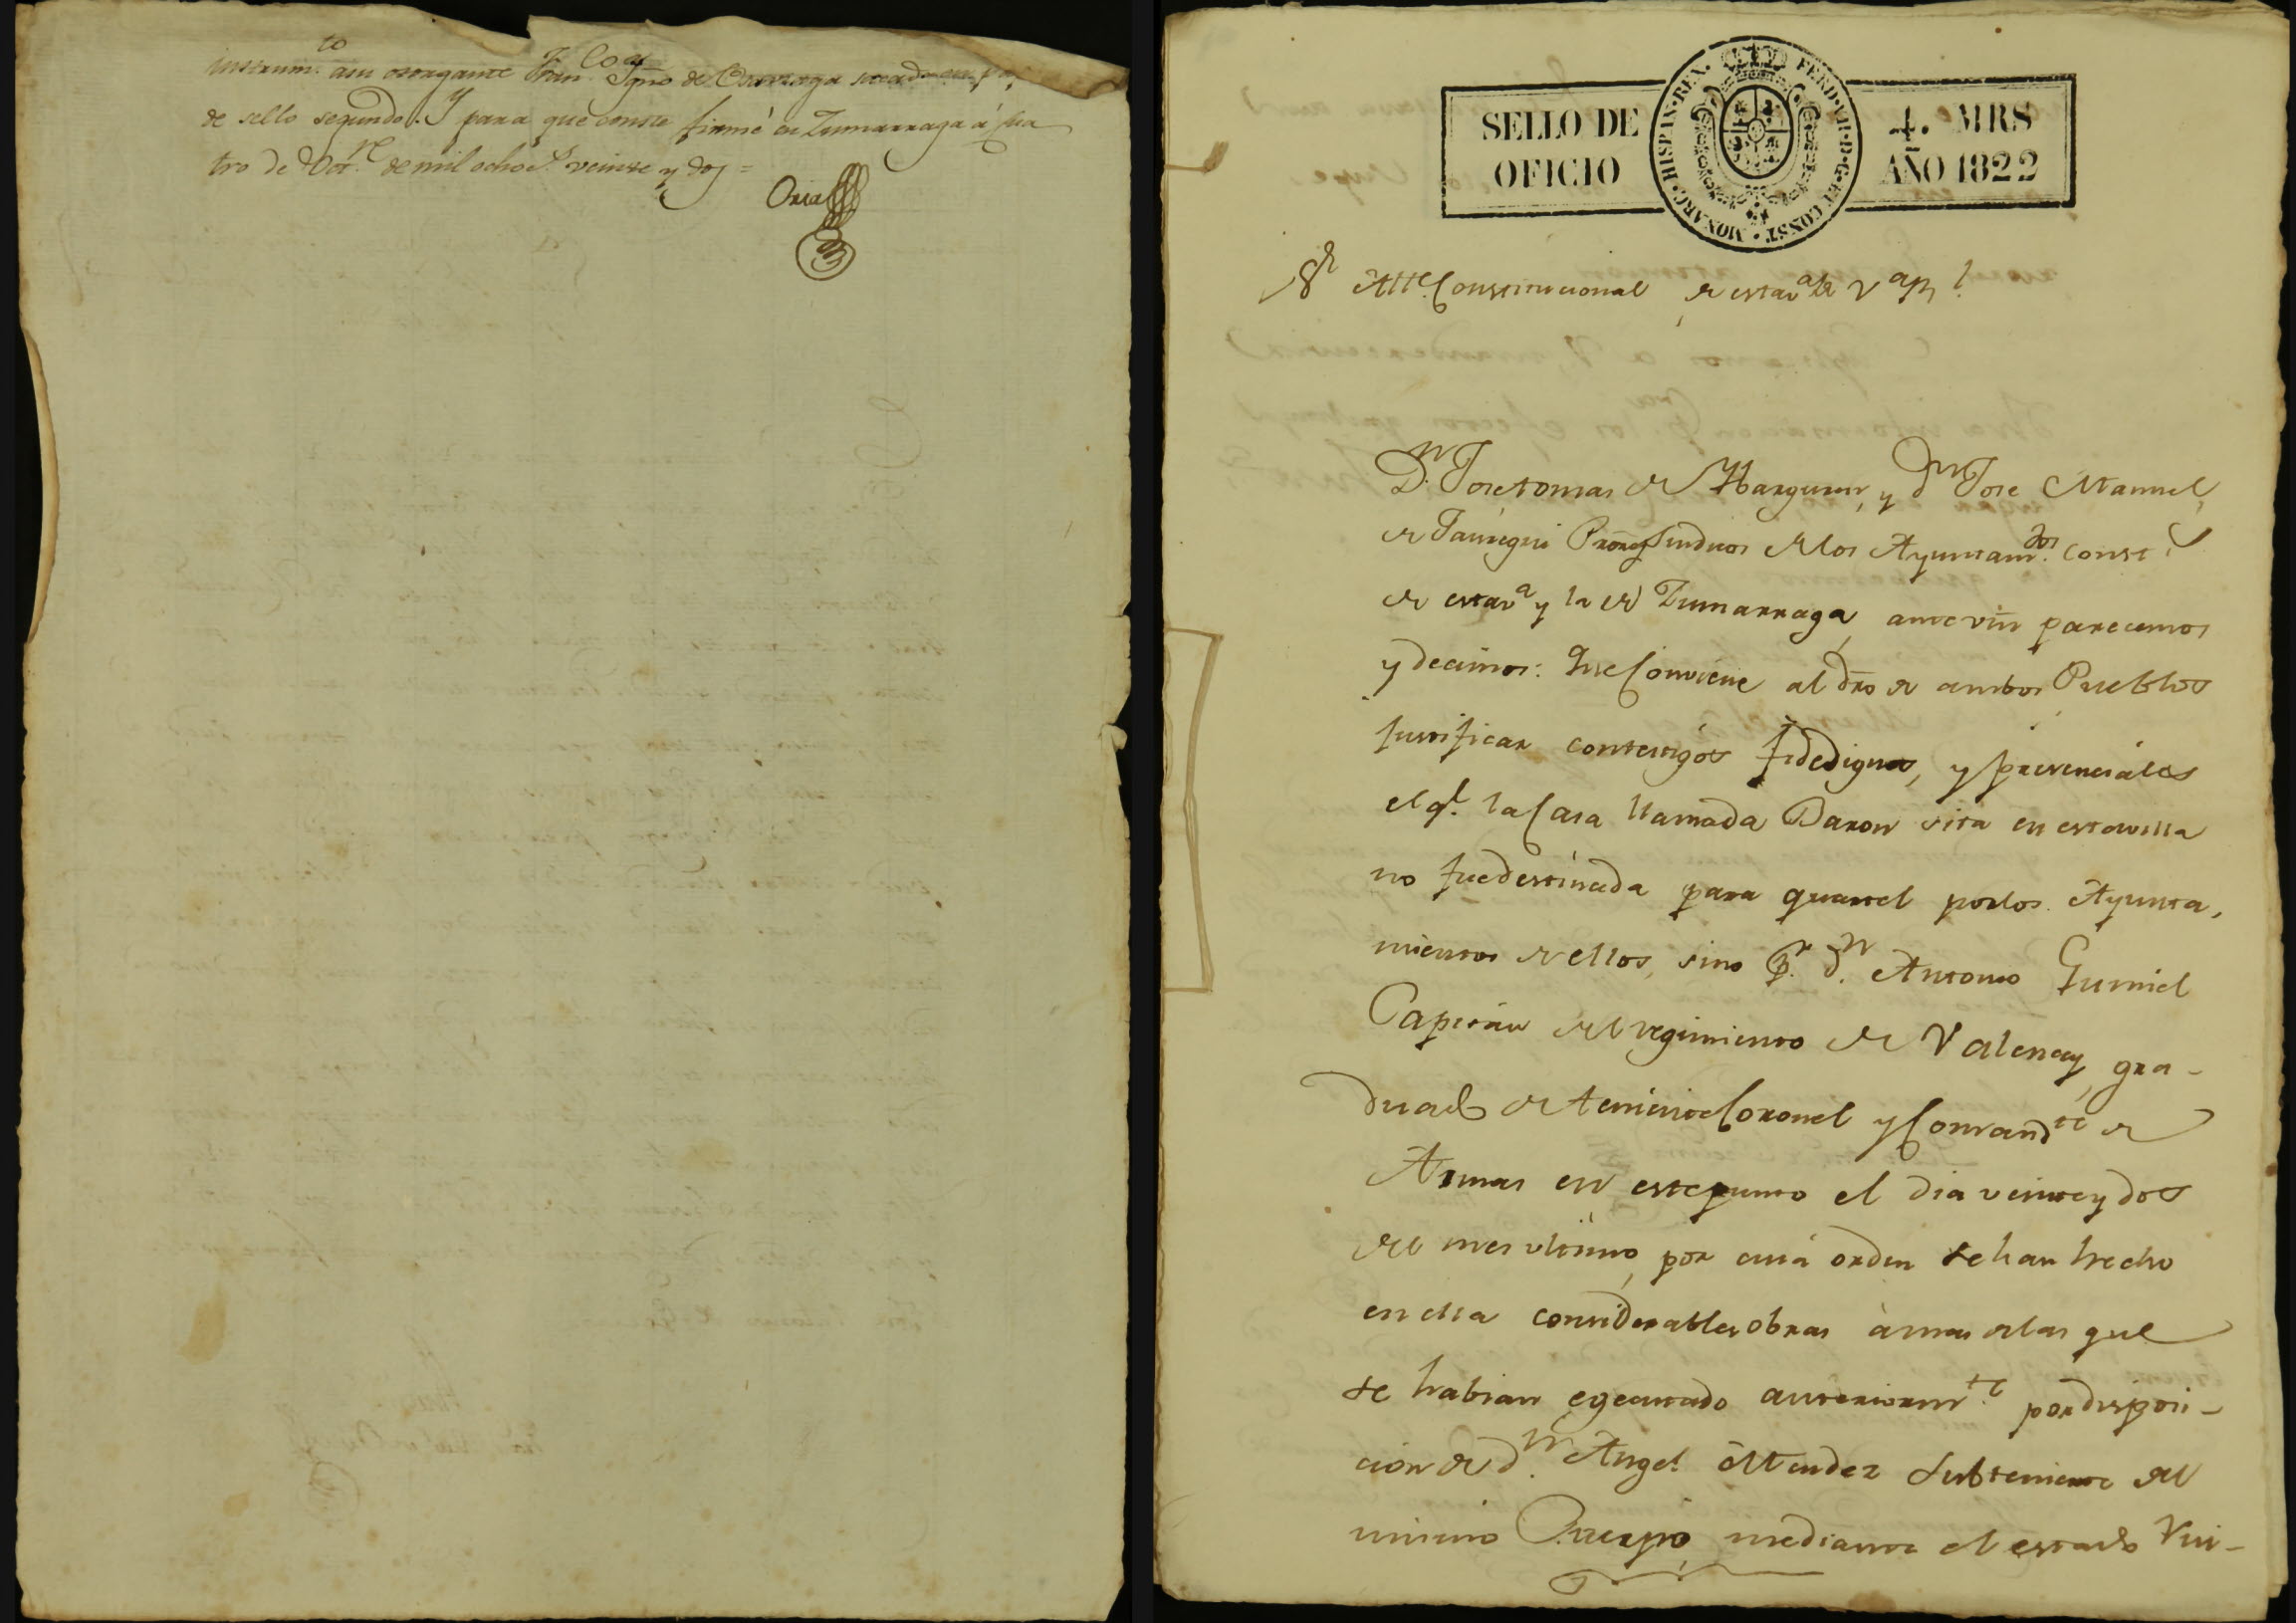 instrum.to a su otorgante Fran.co Ign.o de
de sello segundo. Y para que conste firmé en Zumarraga á cua
tro de de mil ochoc.s veinte y dos =
Oria
SELLO DE
OFICIO
HISPAN. REX. FERD. VII. D. G. ET CONST. MONARC.
4. MRS
AÑO 1822
S.r Alc.e Constitucional de esta v.a
D.n Jose tomas de y d.n Jose Manuel
de Jauregui Pror.es Sindicos de los Ayuntam.tos const.
de esta v.a y la de Zumarraga, ante vm parecemos
y decimos: Que conviene al dro de ambos Pueblos
justificar con testigos fidedignos, y presenciales
el q.e la Casa llamada Baron sita en esta villa
no fue destinada para quartel por los Ayunta,
mientos de ellos, sino p.r d.n Antonio Gumiel
Capitan del regimiento de Valencay, gra-
duado de teniente Coronel y Comand.te de
Armas en este punto el dia veinte y dos
del mes ultimo, por cuia orden se han hecho
en ella considerables obras à mas de las que
se habian egecutado anteriorm.te por disposi-
cion de d.n Angel Mendez Subteniente del
mismo Cuerpo, mediante el estado rui-